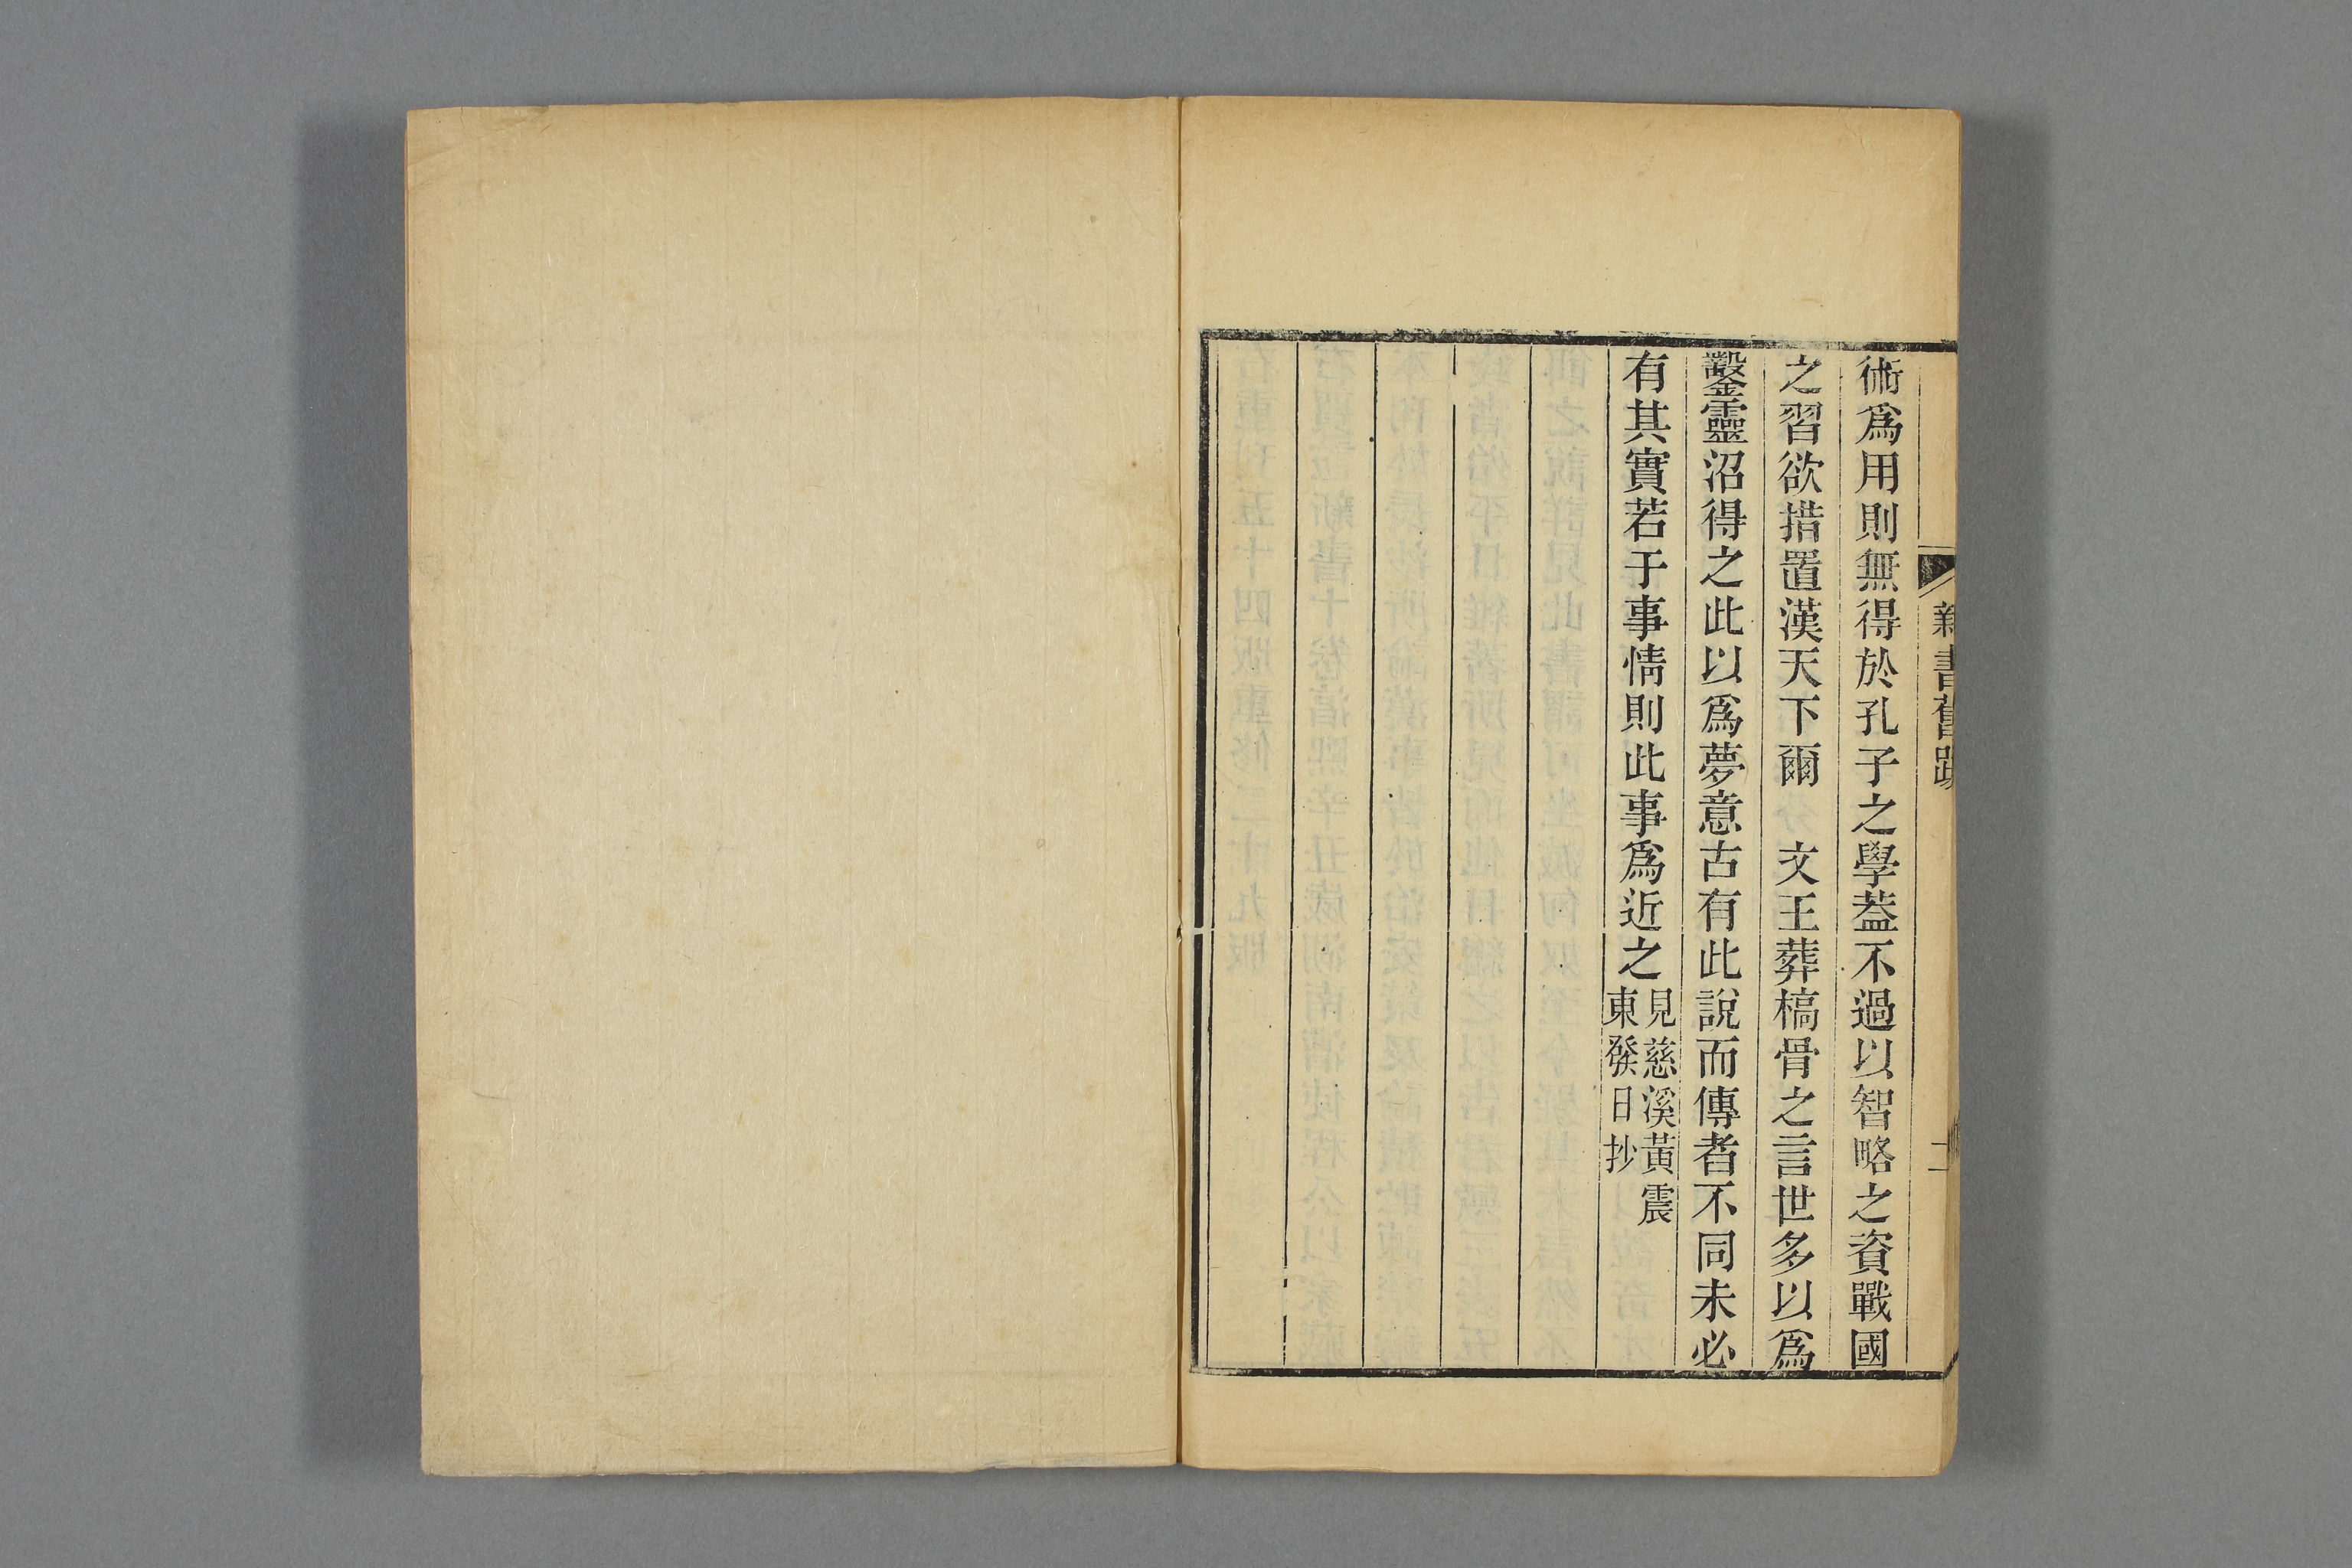 新書舊跋
術爲用則無得於孔子之學葢不過以智略之資戰國
之習欲措置漢天下爾　文王葬槁骨之言世多以爲
鑿靈沼得之此以爲夢意古有此說而傳者不同未必
有其實若于事情則此事爲近之見慈溪黃震
東發日抄